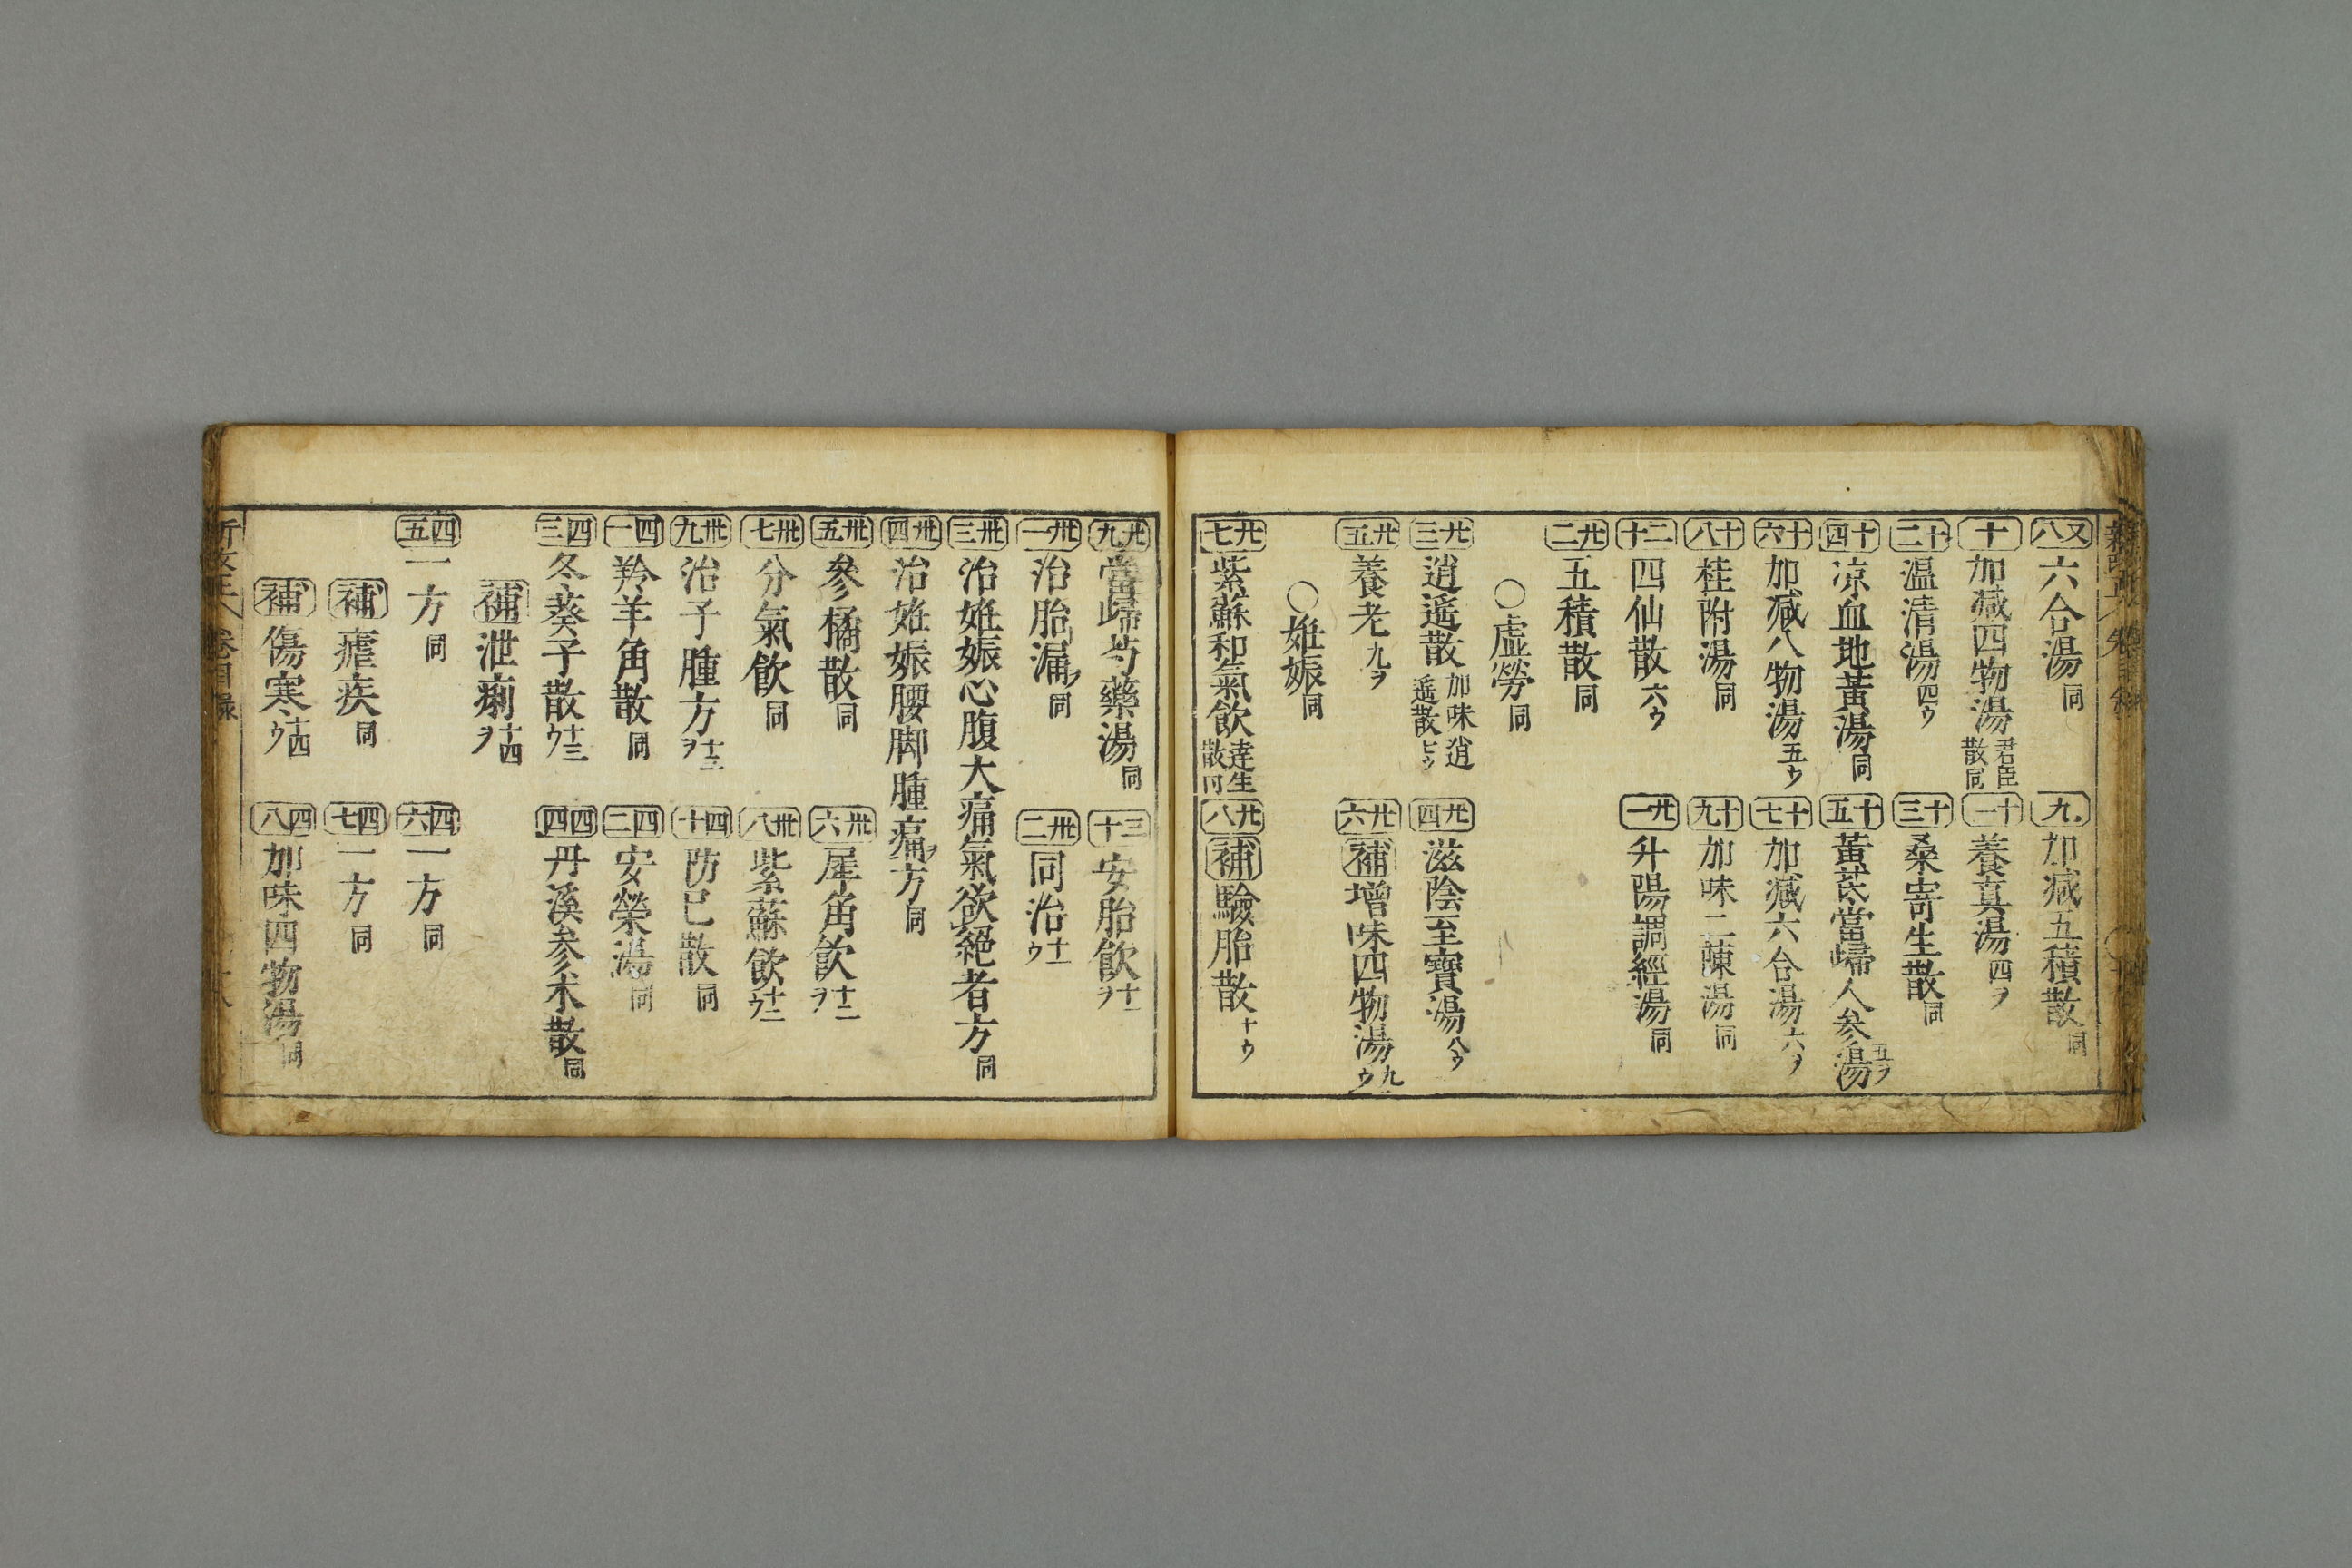 又八 六合湯 同 九 加减五積散 同
十 加减四物湯 君臣散同 十一 養真湯 四ヲ
十二 温清湯 四ウ 十三 桑寄生散 同
十四 凉血地黄湯 同 十五 黄芪當歸人参湯 五ヲ
十六 加减八物湯 五ウ 十七 加减六合湯 六ヲ
十八 桂附湯 同 十九 加味二陳湯 同
二十 四仙散 六ウ 廿一 升陽調經湯 同
廿二 五積散 同
〇虚勞 同
廿三 逍遥散 加味逍遥散 七ウ 廿四 滋陰至寶湯 八ウ
廿五 養老 九ヲ 廿六 補 增味四物湯 九ウ
〇姙娠 同
廿七 紫蘇和氣飲 達生散同 廿八 補 驗胎散 十ウ
廿九 當歸芍藥湯 同 三十 安胎飲 十一ヲ
卅一 治胎漏 同 卅二 同治 十一ウ
卅三 治姙娠心腹大痛氣欲絕者方 同
卅四 治姙娠腰脚腫痛方 同
卅五 參橘散 同 卅六 犀角飲 十二ヲ
卅七 分氣飲 同 卅八 紫蘇飲 十二ウ
卅九 治子腫方 十三ヲ 四十 防已散 同
四一 羚羊角散 同 四二 安榮湯 同
四三 冬葵子散 十三ウ 四四 丹溪参术散 同
補 泄痢 十四ヲ
四五 一方 同 四六 一方 同
補 瘧疾 同 四七 一方 同
補 傷寒 十四ウ 四八 加味四物湯 同
卷目録